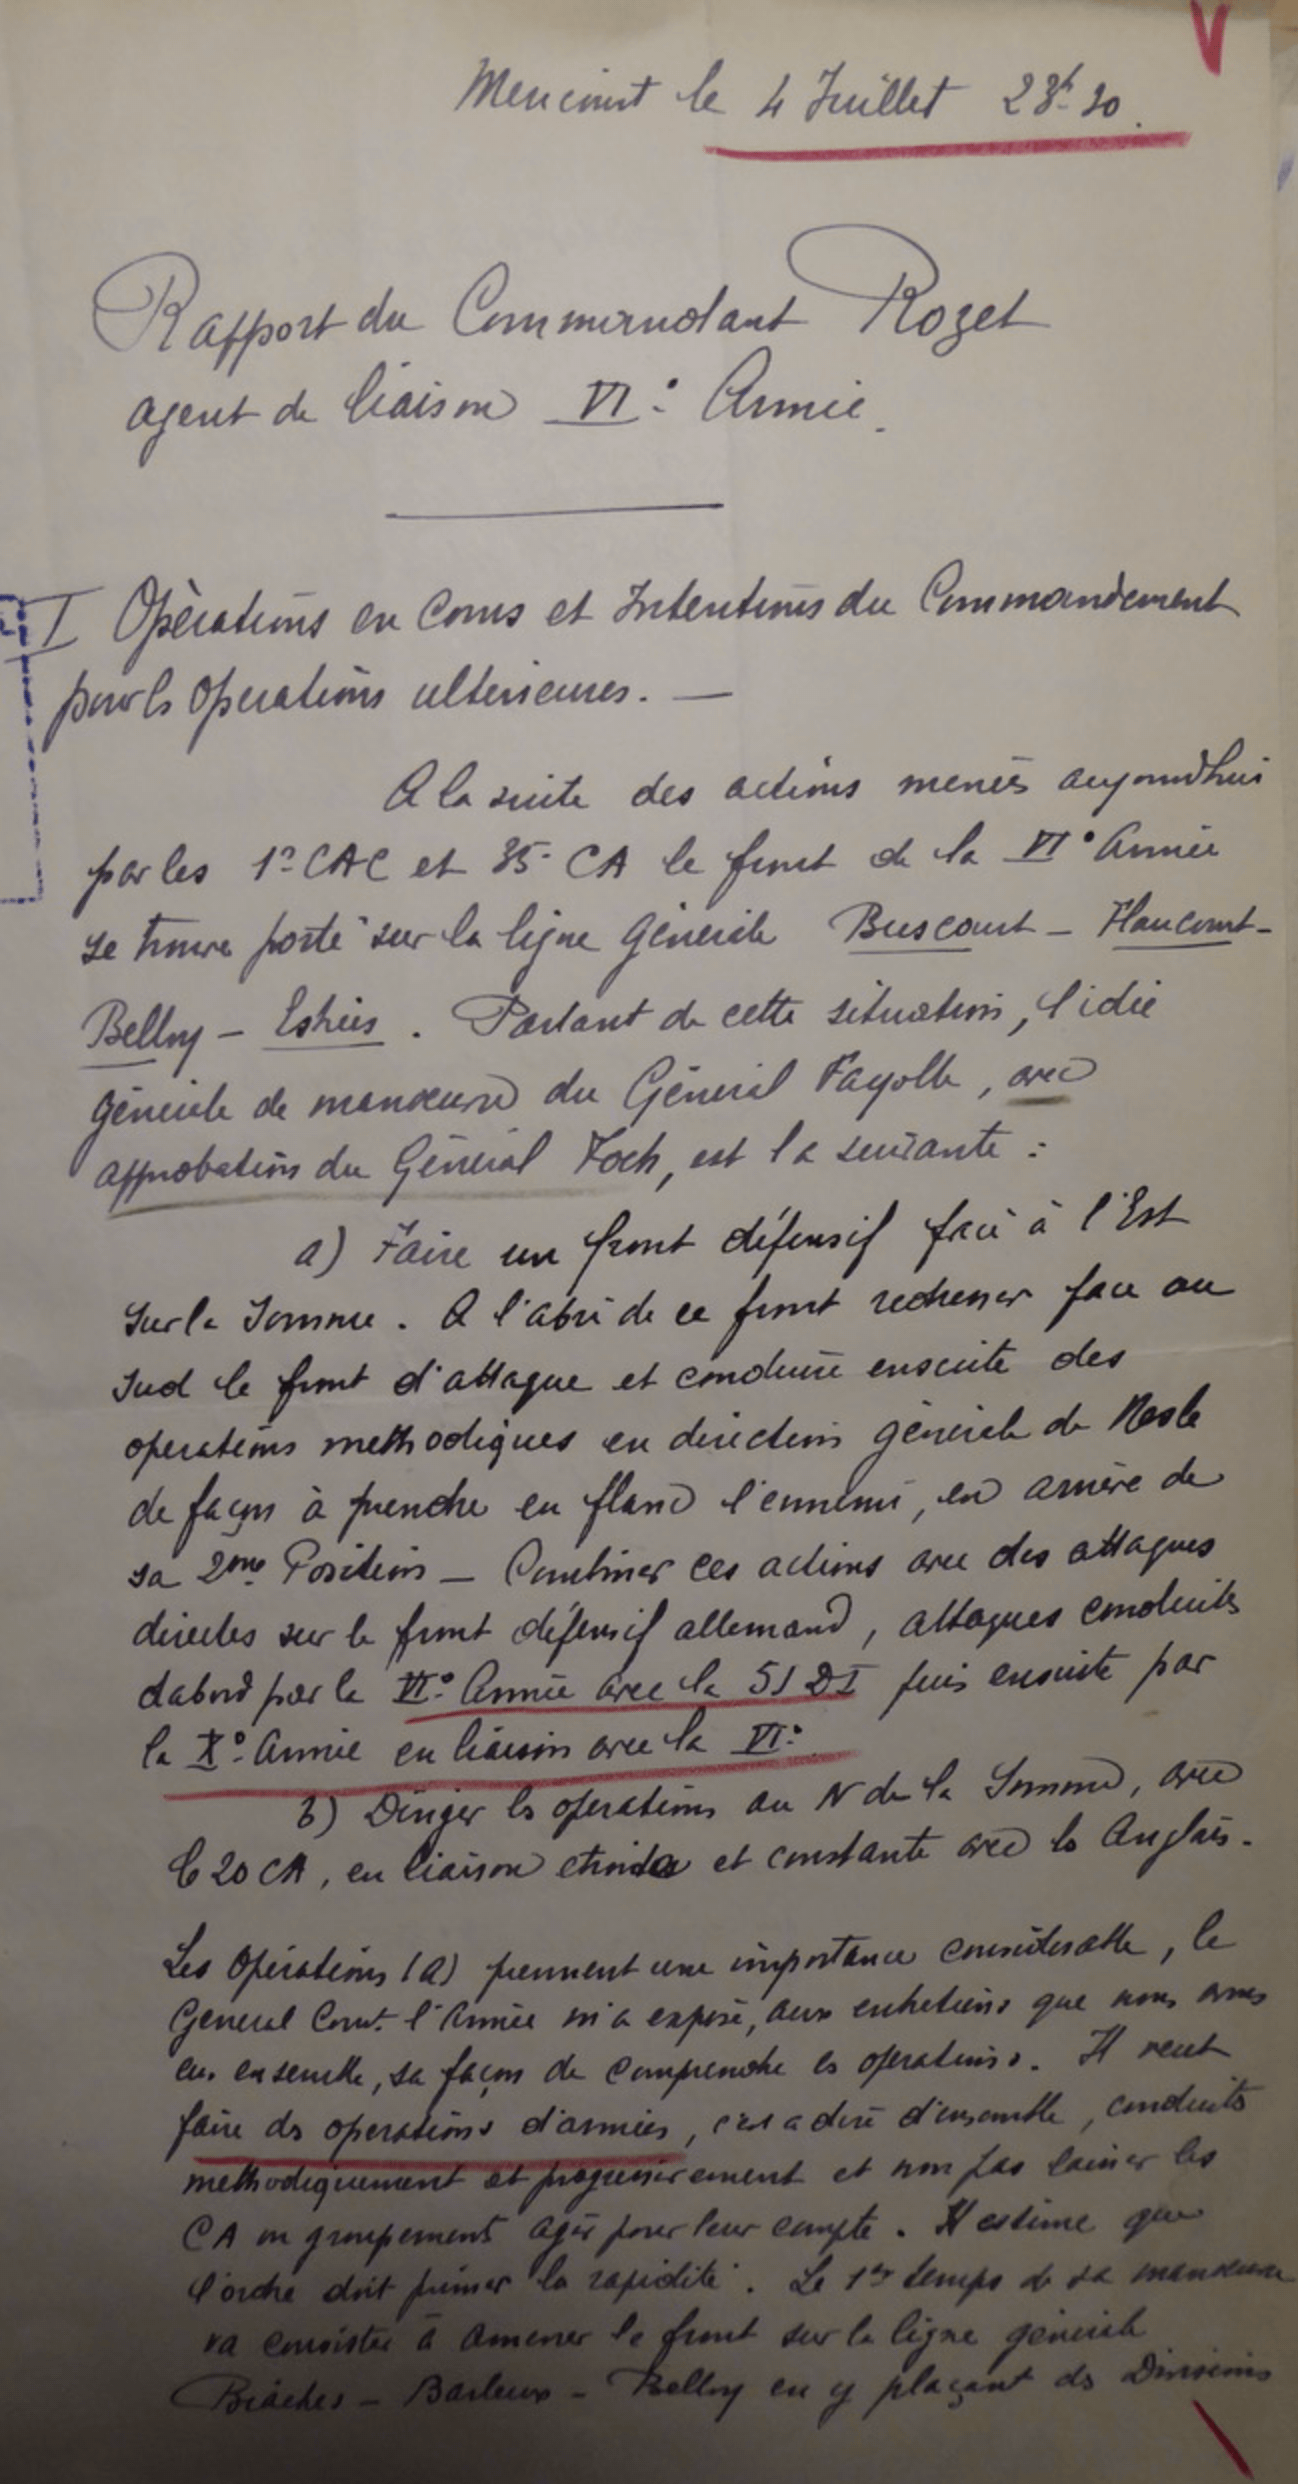 Méricourt le 4 Juillet 23h 30.
Rapport du Commandant Rozet
agent de liaison VI° Armée.
I Opérations en Cours et Intentions du Commandement
pour ls Operations ulterieures. —
A la suite des actions menées aujourd'hui
par les 1° CAC et 35° CA le front de la VI° Armée
se trouve porté sur la ligne générale Buscourt - Flaucourt -
Belloy - Estrées. Partant de cette situation, l'idée
générale de manoeuvre du Général Fayolle, avec
approbation du Général Foch, est la suivante :
a) Faire un front défensif face à l'Est
sur la Somme. A l'abri de ce front redresser face au
sud le front d'attaque et conduire ensuite des
operations methodiques en direction générale de Nesle
de façon à prendre en flanc l'ennemi, en arrière de
sa 2me Position — Combiner ces actions avec des attaques
directes sur le front défensif allemand, attaques conduites
dabord par la VI° Armée avec la 51 DI puis ensuite par
la X° Armée en liaison avec la VI°.
b) Diriger ls operations au N de la Somme, avec
le 20 CA, en liaison etroite et constante avec ls Anglais.
Les Opérations (a) prennent une importance considerable, le
General Comt. l'Armée m'a exposé, aux entretiens que nous avons
eus ensemble, sa façon de comprendre ls operations. Il veut
faire ds operations d'armées, c'est a dire d'ensemble, conduites
methodiquement et progressivement et non pas laisser les
CA ou groupements agir pour leur compte. Il estime que
l'ordre doit primer la rapidité. Le 1er temps de sa manoeuvre
va consister à amener le front sur la ligne générale
Biaches - Barleux - Belloy en y plaçant ds Divisions